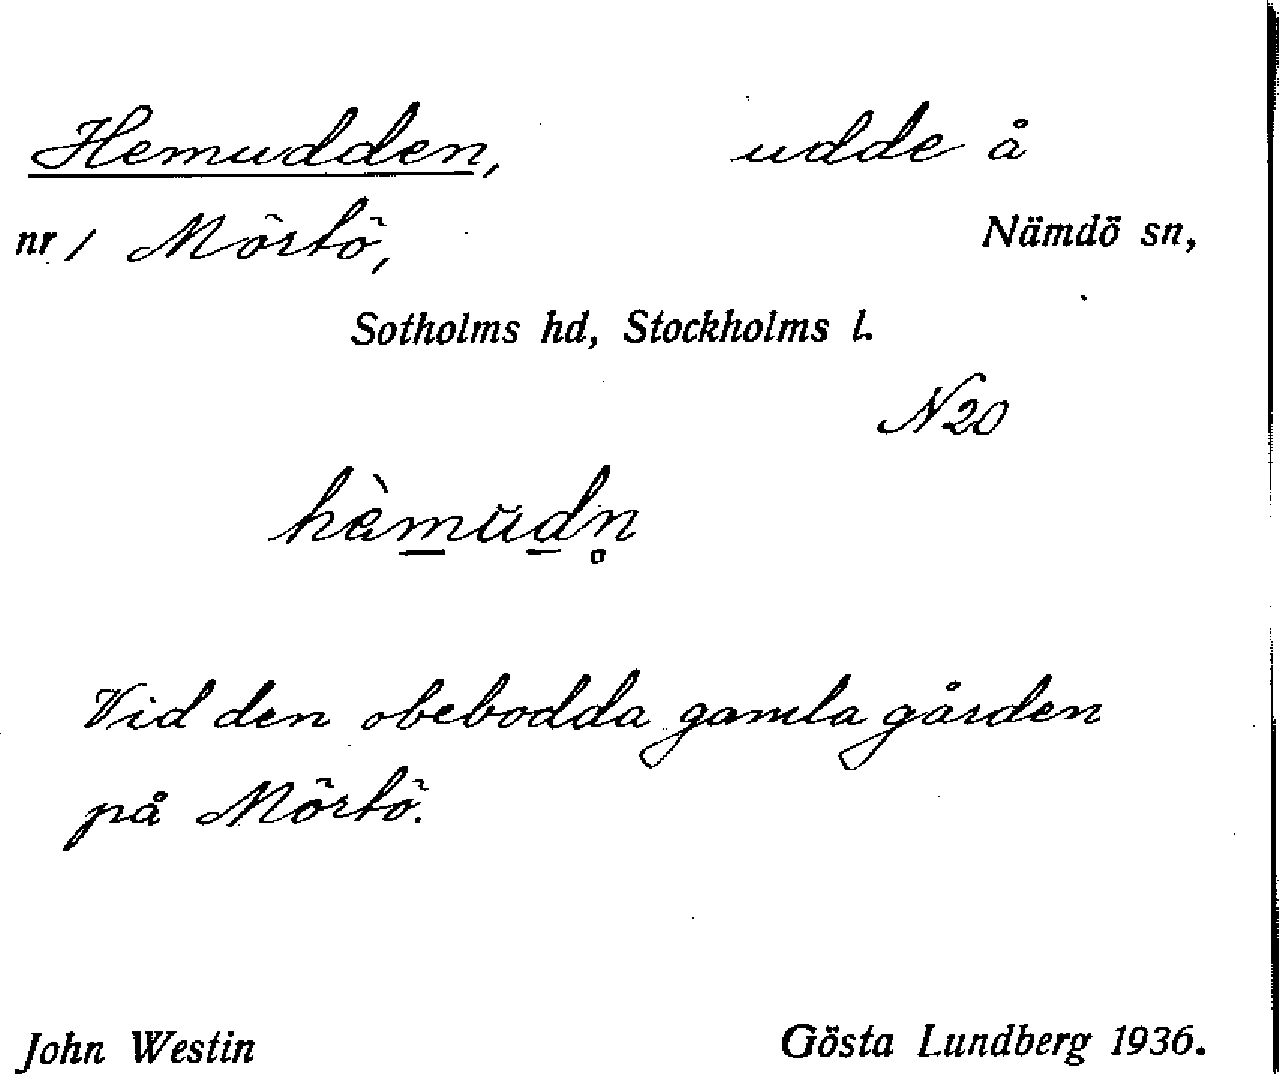 Hemudden, udde å
nr 1 Mörtö, Nämdö sn,
Sotholms hd, Stockholms l.
N20
hèm̲ŭd̲n̥
Vid den obebodda gamla gården
på Mörtö.
John Westin Gösta Lundberg 1936.